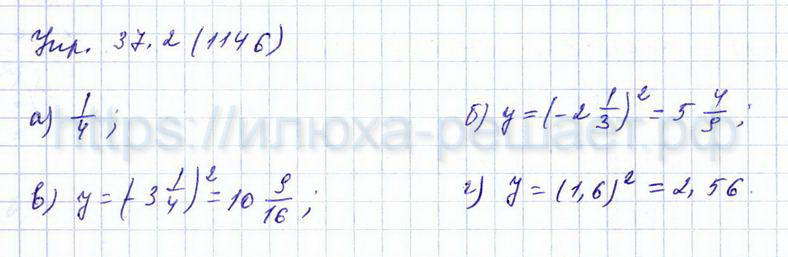 Упр. 37.2 (1146)
а) 1/4 ; б) y = (-2 1/3)² = 5 4/9 ;
https://илюха-решает.рф
в) y = (-3 1/4)² = 10 9/16 ; г) y = (1,6)² = 2,56.